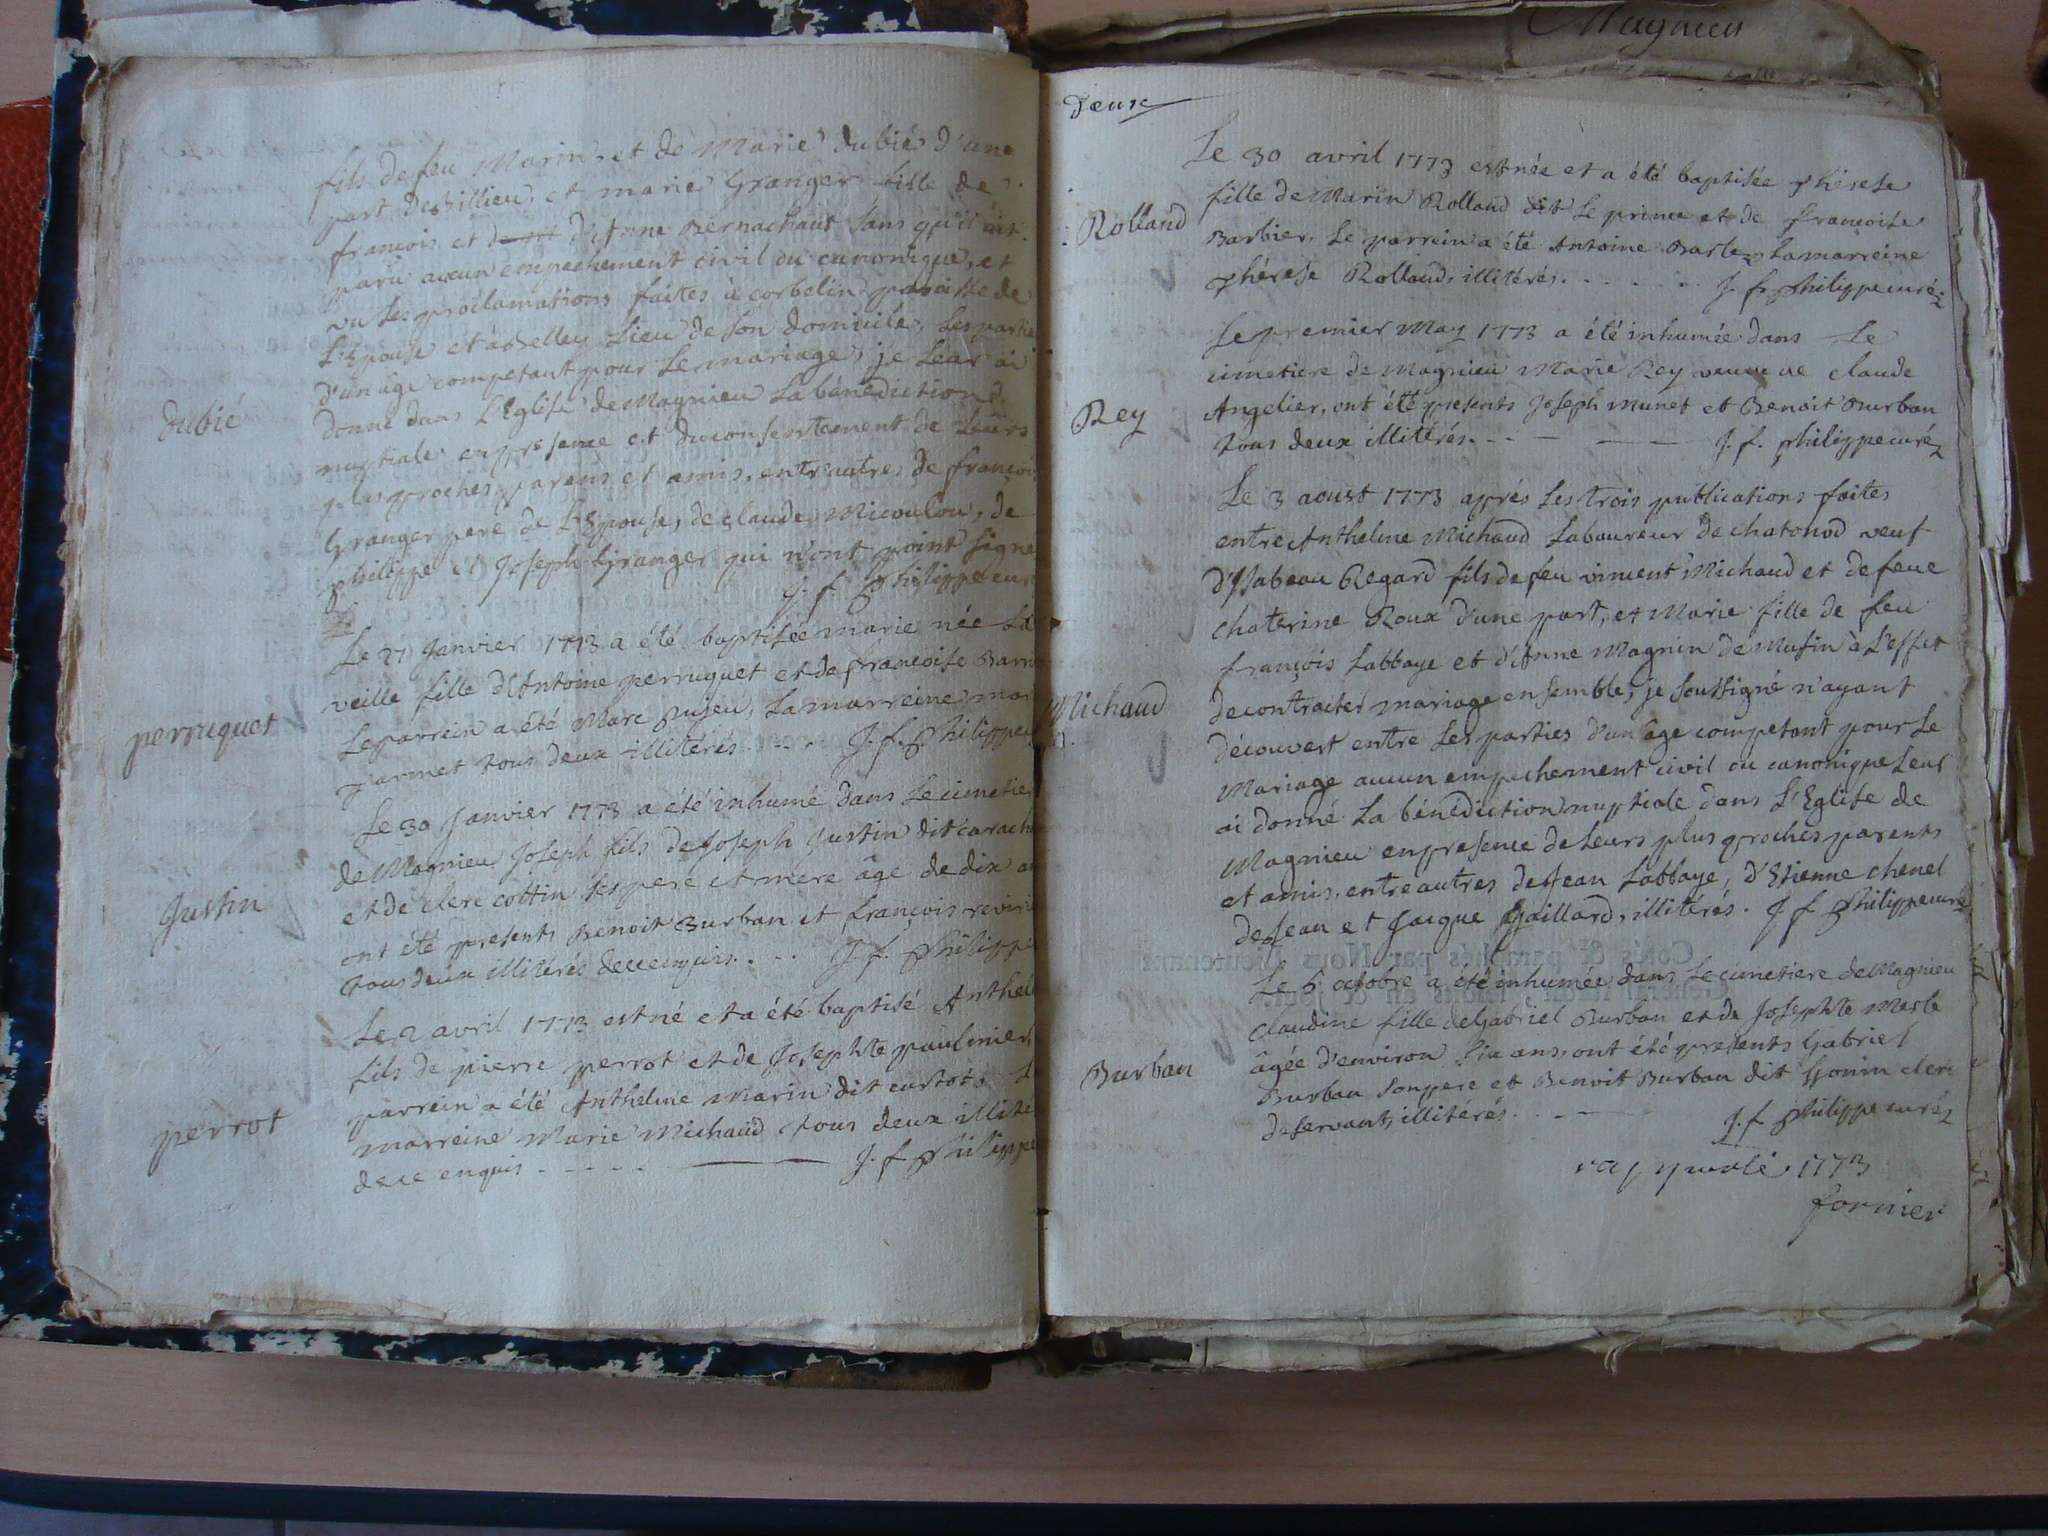 fils de feu Marin, et de Marie dubié d'une
part et marie Granger fille de
francois et d'Anne Bernachaut sans qu'il ait
paru aucun empechement civil ou canonique, et
vu les proclamations faites à corbelin paroisse de
L'Epouse et à Belley Lieu de son domicile, Les partie
d'un âge competant pour Le mariage, je Leur ai
donné dans L'Eglise de Magnieu La bénédiction
dubié
nuptiale en presence et du consentement de Leurs
plus proches parens et amis, entr'autres de françois
Granger pere de L'Epouse, de claude Micoulou, de
philippe et Joseph Granger qui n'ont point signé
J. f. Philippe cur
Le 27 Janvier 1773 a été baptisée marie née La
veille fille d'Antoine perruquet et de françoise Barri
Le parrein a été Marc pujeu, La marreine mar
perruquet
parmet tous deux illitérés. . . . J. f. Philippe
Le 30 Janvier 1773 a été inhumé dans Le cimetier
de Magnieu Joseph fils de Joseph Justin dit carach
et de clere cottin ses pere et mere âgé de dix a
Justin
ont été presents Benoit Burban et françois reviri
tous deux illitérés de ce enquis. . . . J. f. Philippe
Le 2 avril 1773 est né et a été baptisé Anthel
fils de pierre perrot et de Josephte paulmier,
parrein a été Anthelme Marin dit curtot, L
perrot
marreine Marie Michaud tous deux illité
de ce enquis - - - - - J. f. Philippe
Magnieu
deux
Le 30 avril 1773 est née et a été baptisée Thérese
fille de Marin Rolland dit Le prince et de françoise
Rolland
Barbier, Le parrein a été Antoine Barbe La marreine
Thérese Rolland, illitérés. . . . . . . J. f. Philippe curé
Le premier May 1773 a été inhumée dans Le
cimetiere de Magnieu Marie Rey veuve de claude
Rey
Angelier, ont été presents Joseph Munet et Benoit Burban
tous deux illitérés. - - - J. f. Philippe curé
Le 3 aoust 1773 aprés Les trois publications faites
entre Anthelme Michaud Laboureur de chatonod veuf
d'Isabeau Regard fils de feu vincent Michaud et de feue
chaterine Roux d'une part, et Marie fille de feu
françois Labbaye et d'Anne Magnin de Musin à L'effet
de contracter mariage ensemble, je soussigné n'ayant
Michaud
découvert entre Les parties d'un âge competant pour Le
Mariage aucun empechement civil ou canonique Leur
ai donné La bénédiction nuptiale dans L'Eglise de
Magnieu en presence de Leurs plus proches parents
et amis, entre autres de Jean Labbaye, d'Etienne chenel
de Jean et Jacque Gaillard, illitérés. J. f. Philippe curé
Le 6 octobre a été inhumée dans Le cimetiere de Magnieu
claudine fille de Gabriel Burban et de Josephte Merle
âgée d'environ six ans, ont été presents Gabriel
Burban
Burban son pere et Benoit Burban dit Gonin clerc
deservant, illitérés. . . - - J. f. Philippe curé
1773
fornier